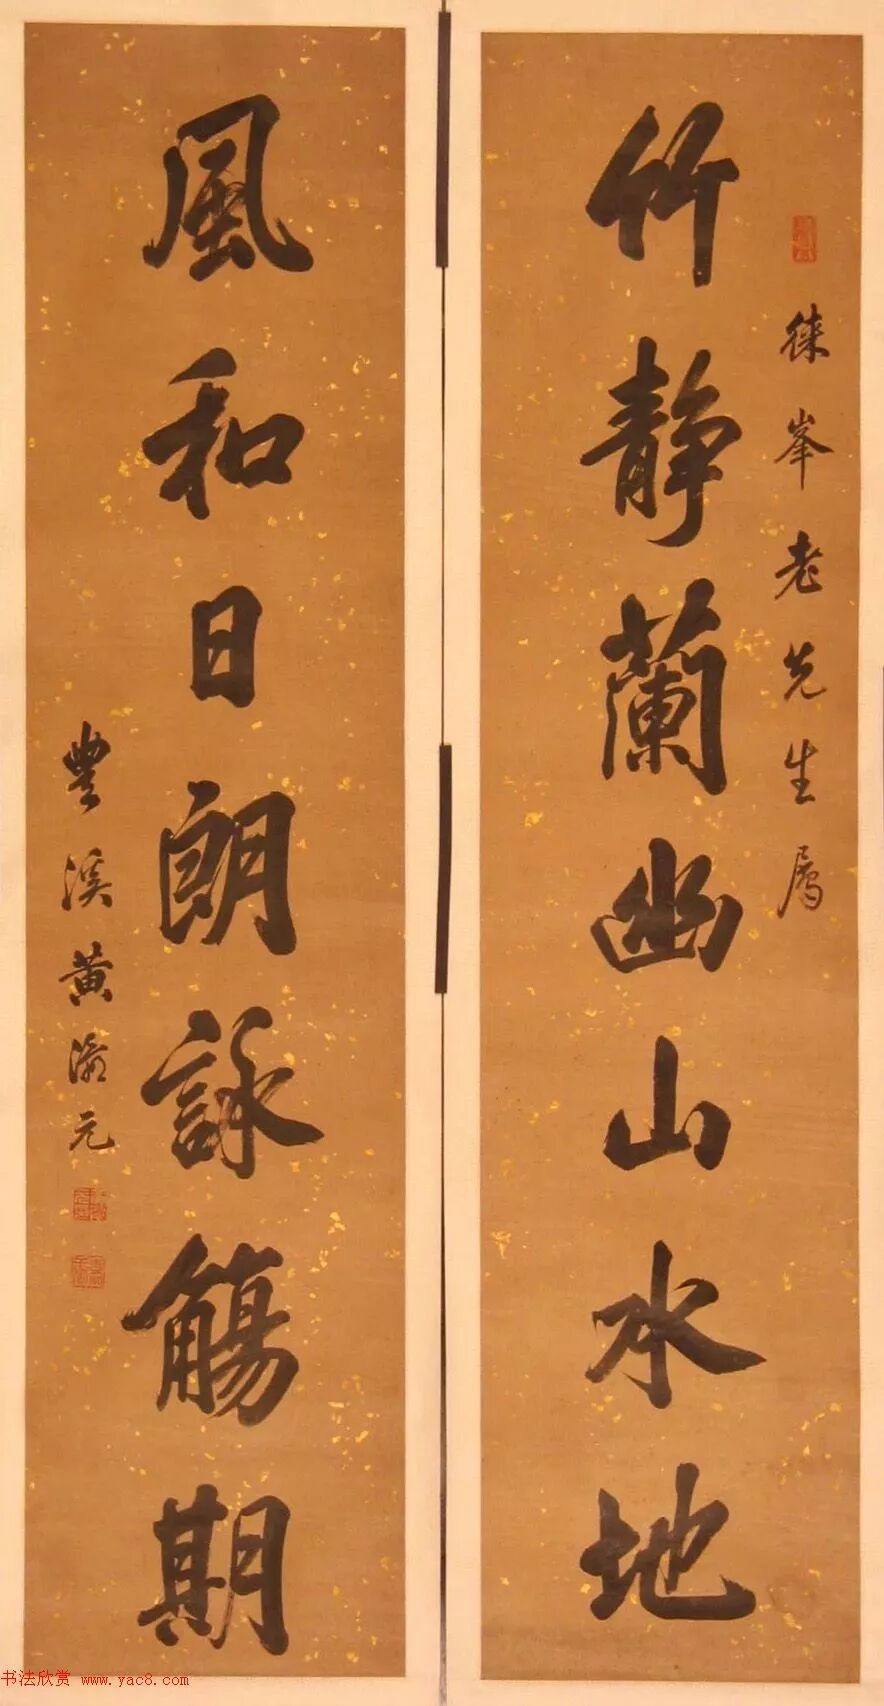 徠峯老先生屬
竹靜蘭幽山水地
風和日朗詠觴期
豐溪黃濬元
书法欣赏 www.yac8.com